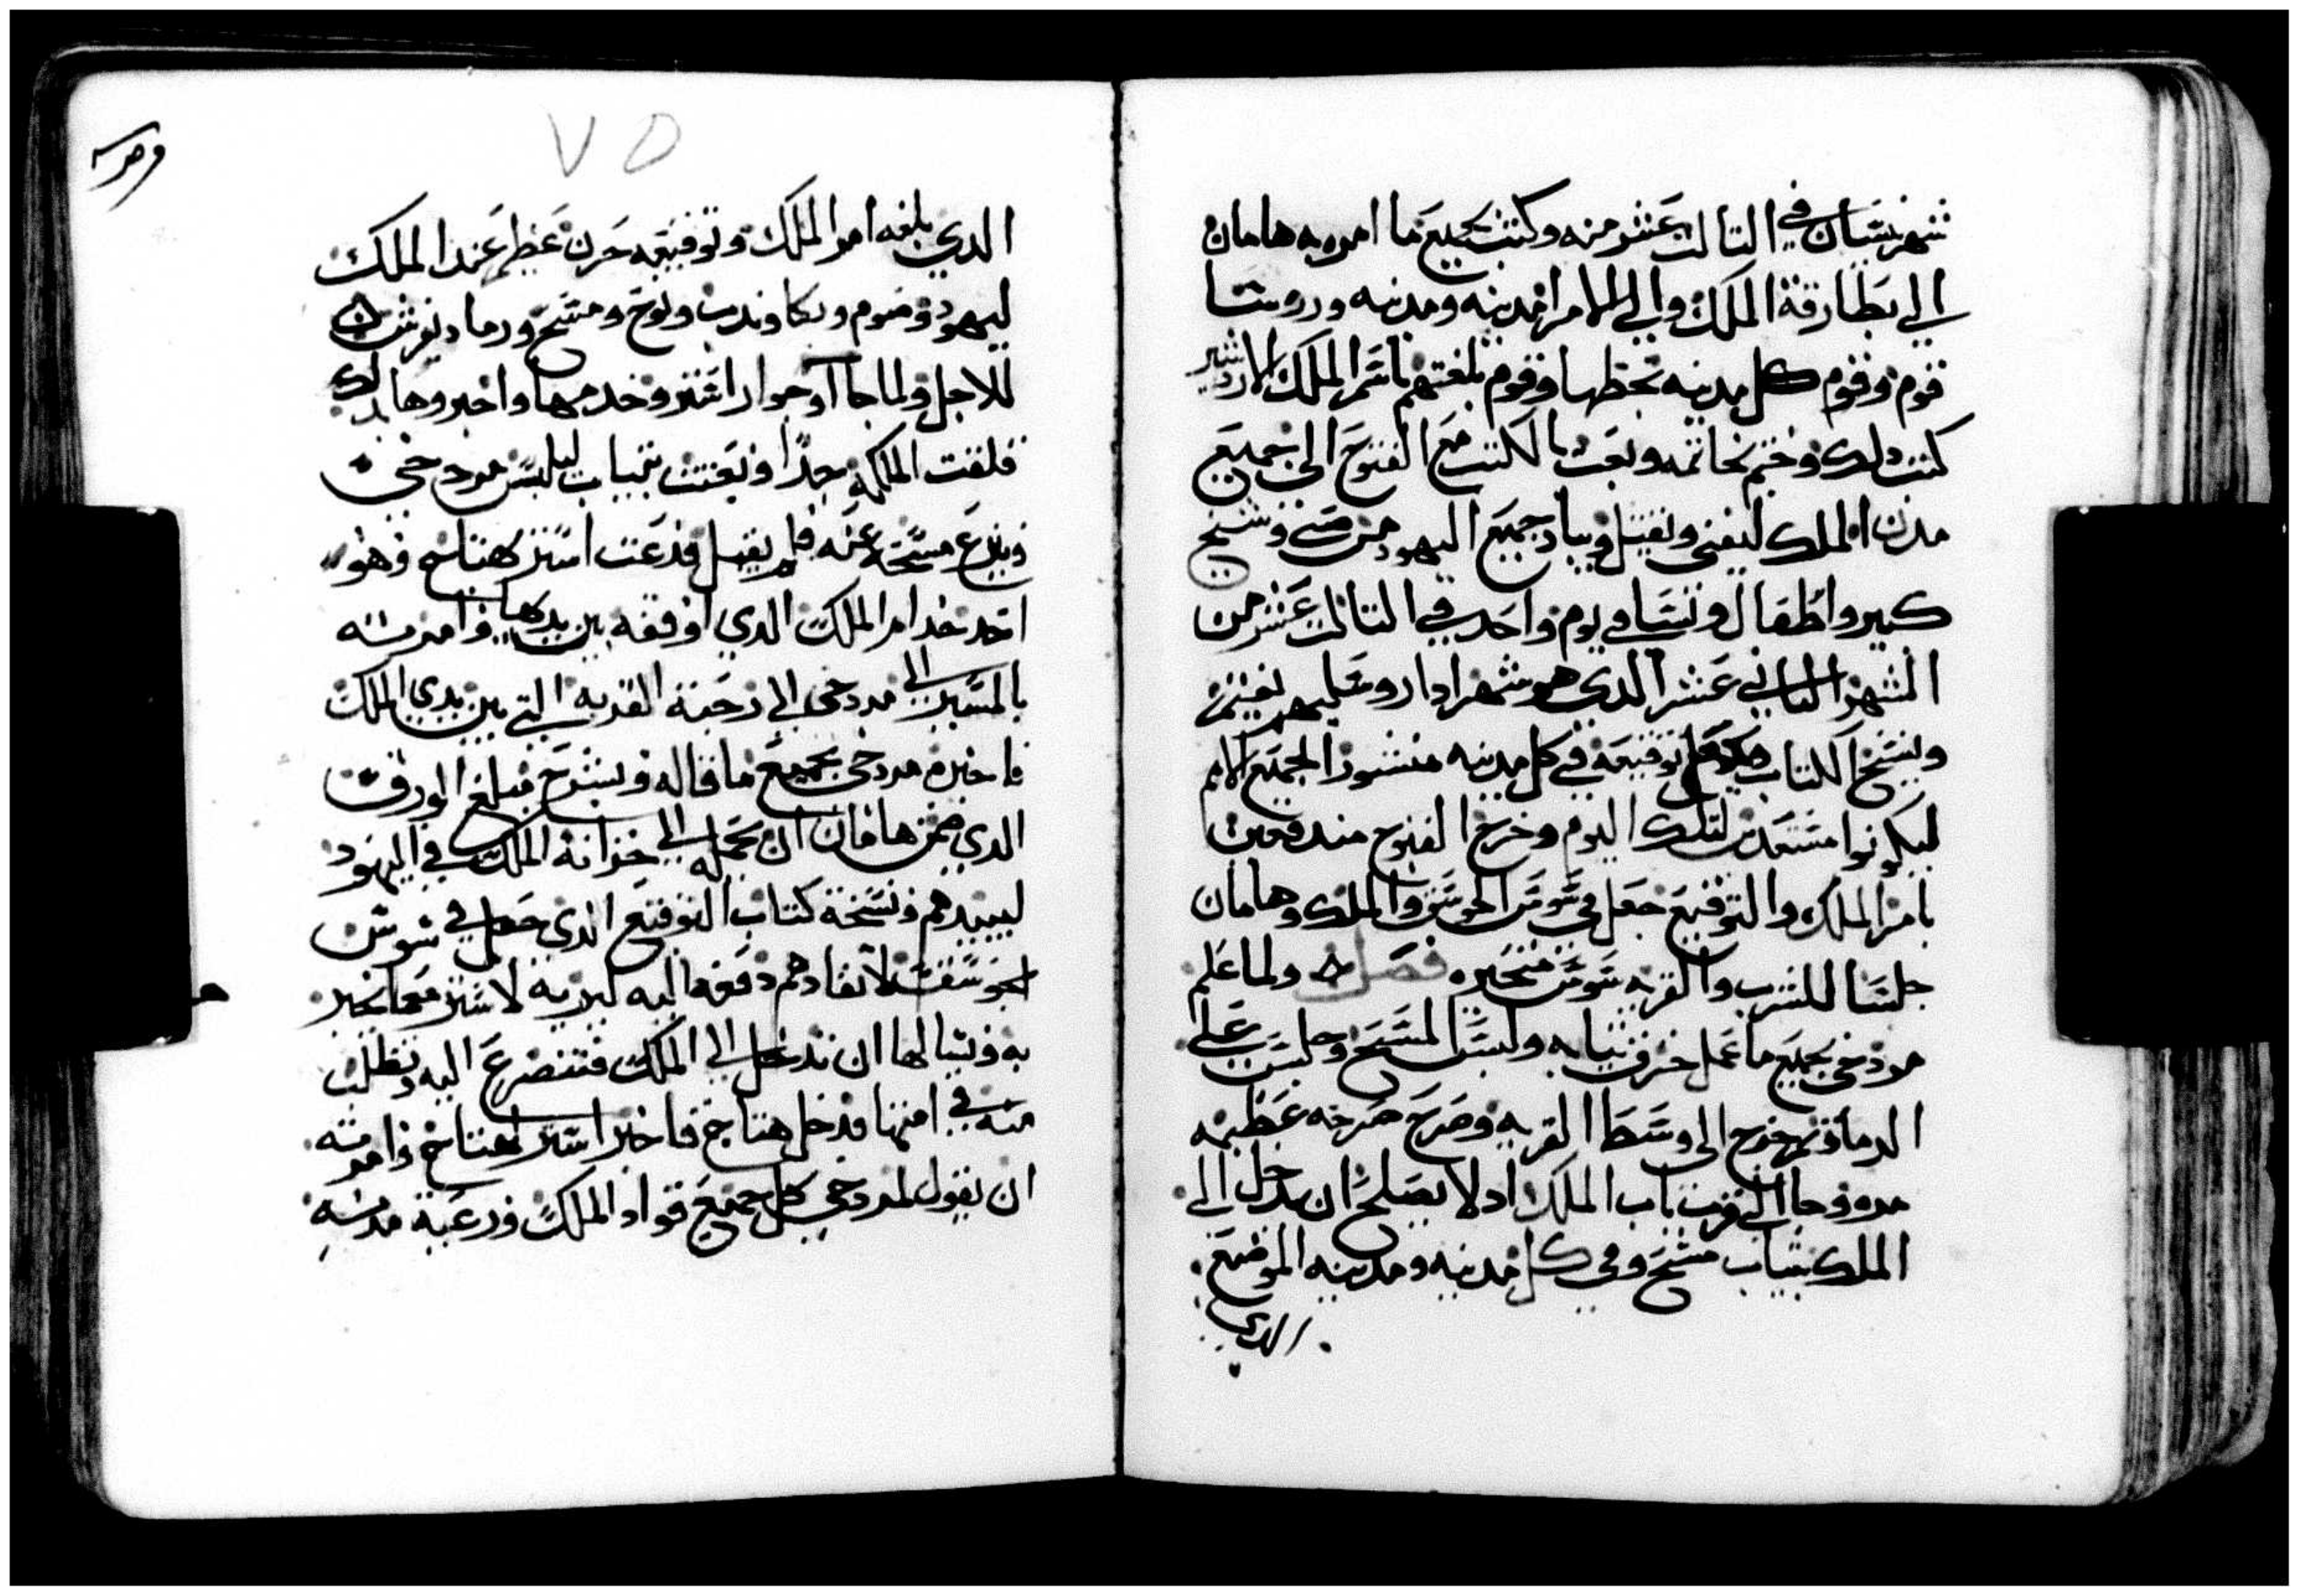 شهر نيسان في التالت عشر منه وكتب بجميع ما امر به هامان
الي بطارقة الملك والي الامرا مدينه ومدينه وروسا
قوم وقوم كل مدينه بخطها وقوم بلغتهم باسم الملك الازدشير
كتب دلك وختم بخاتمه وبعت بالكتب مع الفتوج الى جميع
مدن الملك ليفنى ويقتل ويباد جميع اليهود من صبي وشيخ
كبير واطفال ونسا في يوم واحد في التالت عشر من
الشهر التاني عشر الدي هو شهر ادار وسلبهم يغنم
وينسخ الكتاب توقيعه في كل مدينه منشورا لجميع الامم
ليكونوا مستعدين لتلك اليوم وخرج الفتوج مندفعين
بامر الملك والتوقيع جعل في سوس الجوسق والملك وهامان
جلسا للشرب والقريه سوس متحيره فصل ولما علم
مردخي بجميع ما عمل خرق تيابه ولبس المسح وجلس على
الرماد ثم خرج الى وسط القريه وصرخ صرخه عظيمه
مره وجا الي قرب باب الملك اد لا يصلح ان يدخل الي
الملك بتياب مسح وفي كل مدينه ومدينه الموضع
الدي
٧٥
الدي بلغه امر الملك وتوقيعه حزن عظيم عند الملك
ليهود وصوم وبكا وندب ونوح ومسح ورماد يفرش
للاجل ولما جا اوجوار استر وخدمها واخبروها بدلك
فلقت الملكه جدا وبعتت بتياب ليلبس مردخي
وينزع مسحه عنه فلم يقبل فدعت استر لهتاخ وهو
احد خدام الملك الدي اوقفه بين يديها وامرته
بالمسير الى مردخي الى رحبة القريه التي بين يدي الملك
فاخبره مردخي بجميع ما قاله وبشرح مبلغ الورق
الدي ضمن هامان ان يحمله الى خزانة الملك في اليهود
ليبيدهم ونسخة كتاب التوقيع الدي جعل في سوس
الجوسق لانفادهم دفعه اليه ليريه لاستر معما يخبر
به ويسالها ان تدخل الى الملك فتتضرع اليه وتطلب
منه في امتها فدخل هتاخ فاخبر استر لهتاخ وامرته
ان يقول لمردخي كل جميع قواد الملك ورعية مدنه